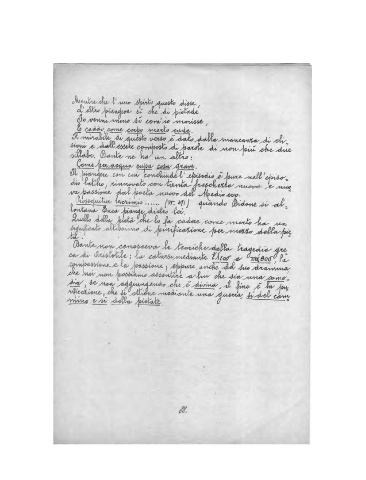 Mentre che l'uno spirto questo disse,
l'altro piangeva sì che di pietade
Io venni meno sì com'io morisse,
E caddi come corpo morto cade.
Il mirabile di questo verso è dato dalla mancanza di eli-
sioni e dall'essere composto di parole di non più che due
sillabe. Dante ne ha un altro:
Come per acqua cupa cosa grave.
Il piangere con cui conclude l'episodio è pure nell'episo-
dio latino, rinnovato con tanta freschezza nuova e nuo
va passione dal poeta nuovo del Medio evo.
Prosequitur lacrimis ...... quando Didone si al-
lontana Enea piange dietro lei.
Quello della pietà che lo fa cadere come morto ha un
significato altissimo di purificazione per mezzo della pie
tà.
Dante non conosceva le teoriche della tragedia gre
ca di Aristotile: la catarsi mediante e la
compassione e la passione; eppure anche col suo dramma
che noi non possiamo accordare a lui che sia una come-
dia, se non aggiungendo che è divina, il fine è la pu
rificazione, che si ottiene mediante una guerra sì del cam
mino e sì della pietate